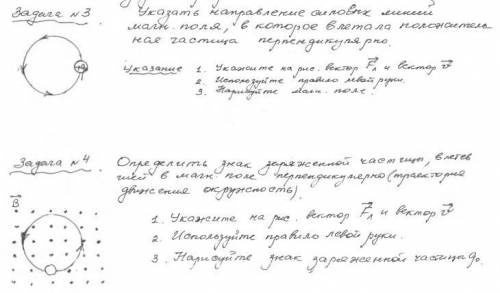 Задача №3. Указать направление силовых линий
магн. поля, в которое влетала положитель-
ная частица перпендикулярно.
Указание 1. Укажите на рис. вектор F⃗л и вектор v⃗
2. Используйте правило левой руки.
3. Нарисуйте магн. поле.
Задача №4. Определить знак заряженной частицы, влетев
шей в магн. поле перпендикулярно (траектория
движения окружность).
B⃗
1. Укажите на рис. вектор F⃗л и вектор v⃗
2. Используйте правило левой руки.
3. Нарисуйте знак заряженной частицы q₀.